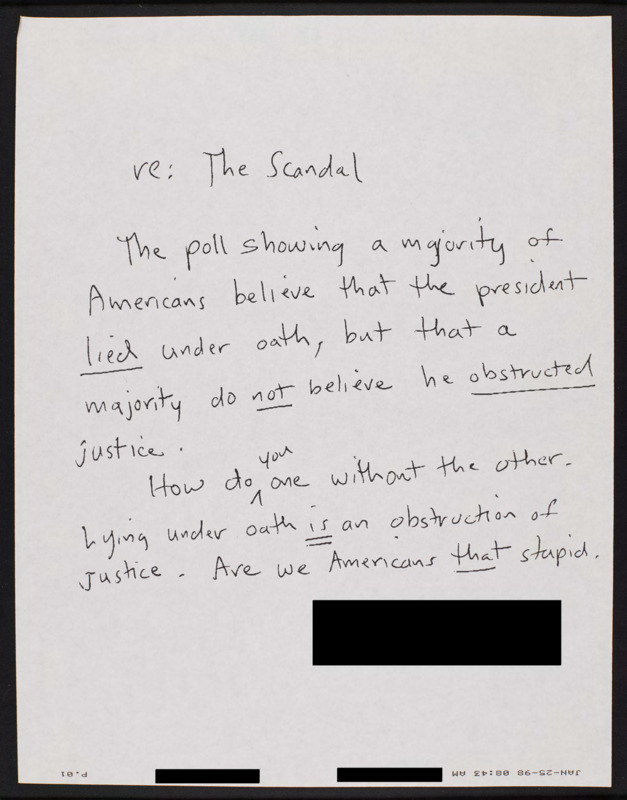 re: The Scandal
The poll showing a majority of
Americans believe that the president
lied under oath, but that a
majority do not believe he obstructed
justice.
How do you one without the other.
Lying under oath is an obstruction of
justice. Are we Americans that stupid.
JAN-25-98 08:43 AM
P.01